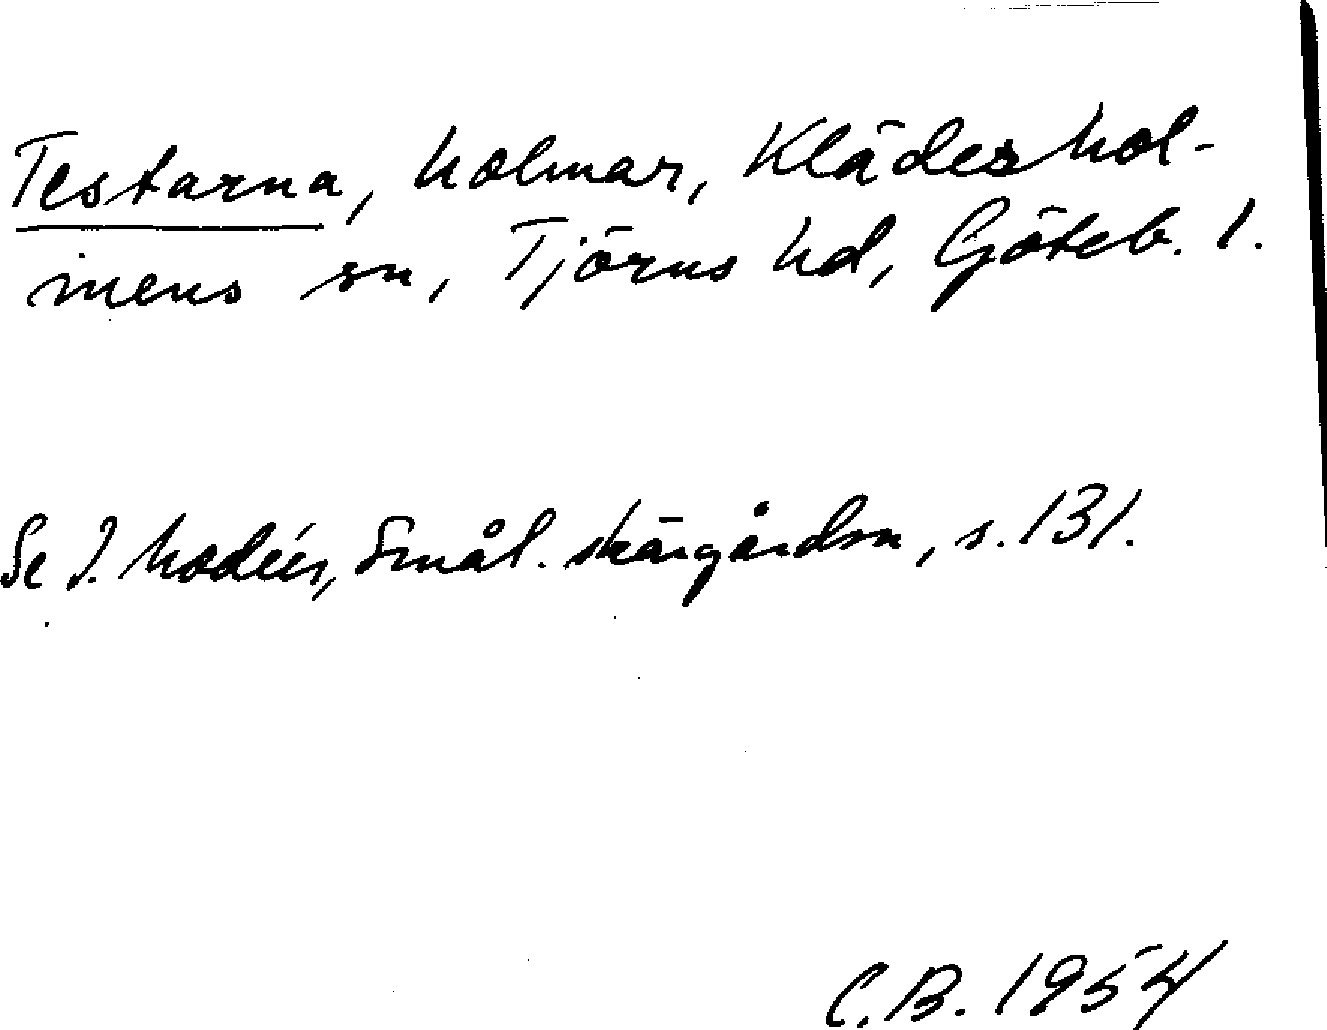 Testarna, holmar, Klädeshol-
mens sn, Tjörns hd, Göteb. l.
Se I. Modéer, Smål. skärgården, s. 131.
C.B. 1954